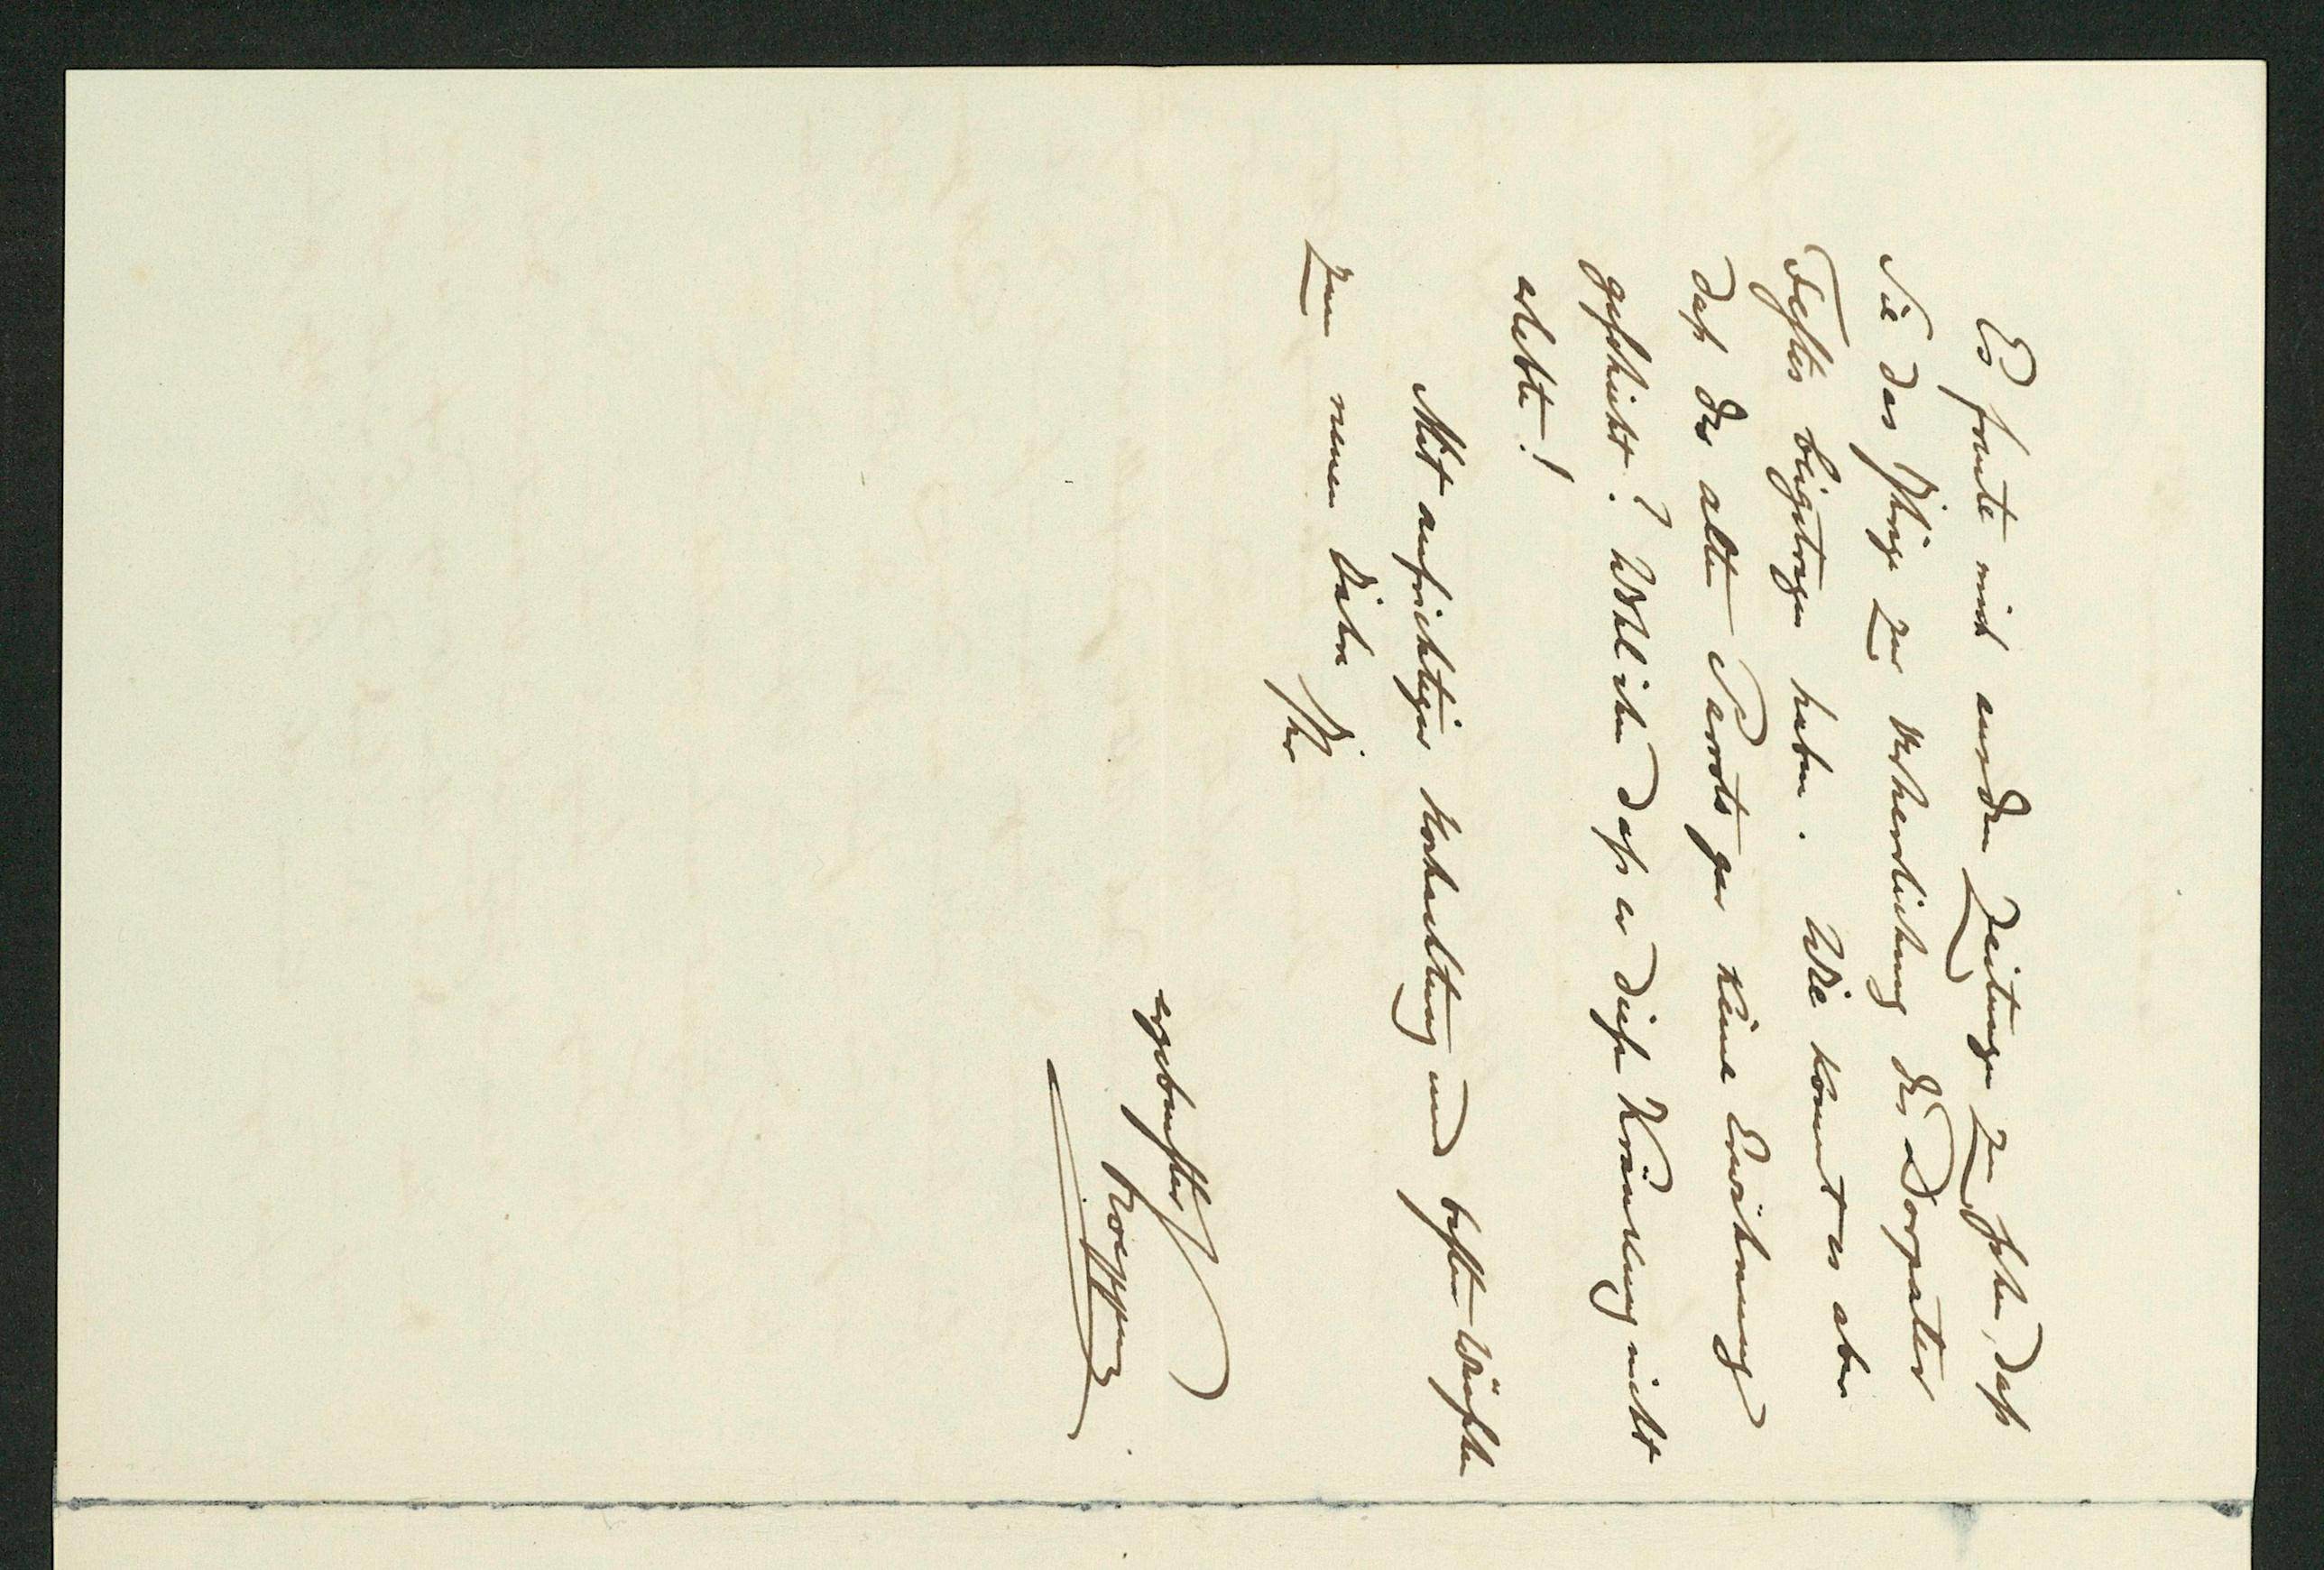 Es freute mich aus den Zeitungen zu sehen, daß
Sie das Ihrige zur Verherrlichung des Dorpater
Festes beigetragen haben. Wie kommt es aber
daß des alten Parrots gar keine Erwähnung
geschieht? Wohl ihm daß er diese Kränkung nicht
erlebte!
Mit aufrichtiger Hochachtung und besten Wünschen
zum neuen Jahre Ihr
ergebenster
Koeppen